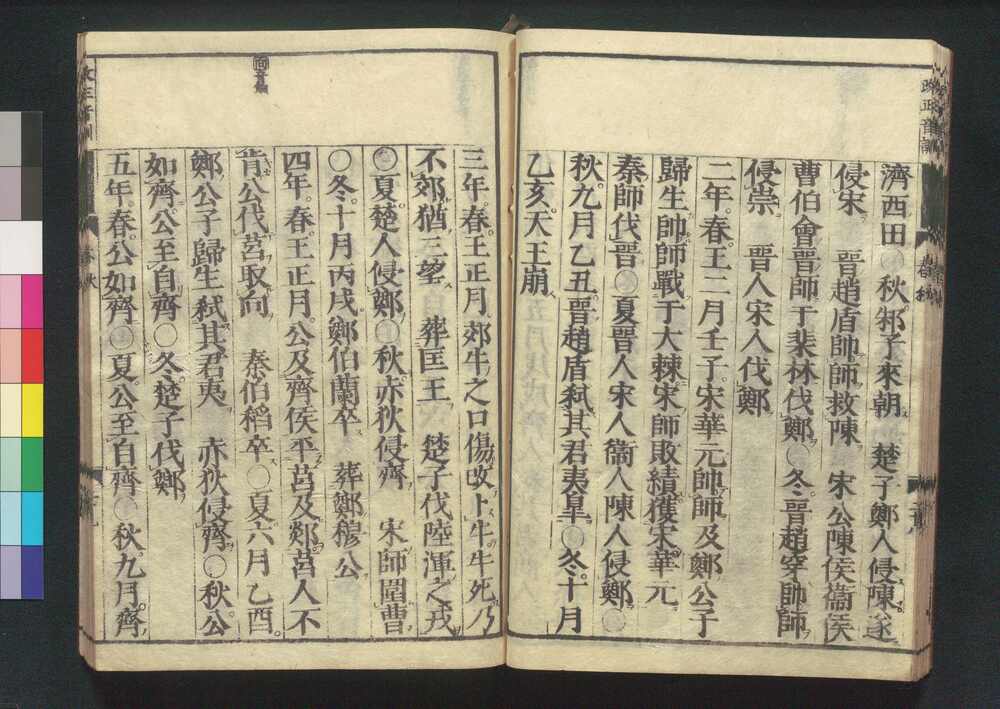 濟西田○秋邾子來朝　楚子鄭人侵陳遂
侵宋　晉趙盾帥師救陳　宋公陳侯衞侯
曹伯會晉師于棐林伐鄭○冬晉趙穿帥師
侵崇　晉人宋人伐鄭
二年春王二月壬子宋華元帥師及鄭公子
歸生帥師戰于大棘宋師敗績獲宋華元
秦師伐晉○夏晉人宋人衞人陳人侵鄭○
秋九月乙丑晉趙盾弒其君夷皐○冬十月
乙亥天王崩
三年春王正月郊牛之口傷改卜牛牛死乃
不郊猶三望　葬匡王　楚子伐陸渾之戎
○夏楚人侵鄭○秋赤狄侵齊　宋師圍曹
○冬十月丙戌鄭伯蘭卒　葬鄭穆公
四年春王正月公及齊侯平莒及郯莒人不
肯公伐莒取向　秦伯稻卒○夏六月乙酉
鄭公子歸生弒其君夷　赤狄侵齊○秋公
如齊公至自齊○冬楚子伐鄭
五年春公如齊○夏公至自齊○秋九月齊
春秋